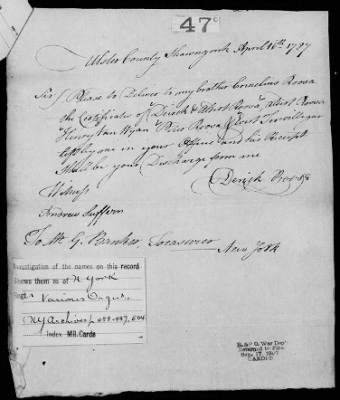 47c
Ulster County Shawangunk April 16th 1787
Sir / Please to Deliver to my brother Cornelius Roosa
the Certificate of Derick & Albert Roosa Aldert Roosa
Henry Van Wyan Peter Roosa
left in your Office and his Receipt
Shall be your Discharge from me
Derick Roosa
Witness
Andrew Suffern
To Mr. G. Bancker Treasurer
New York
Investigation of the names on this record
shows them as of N York
Regt.s Various Orgns.
(NY Archives p.
Index Mil. Cards
R. & P. O. War Dept
Returned to Files
Sep. 17, 1907
CARDED